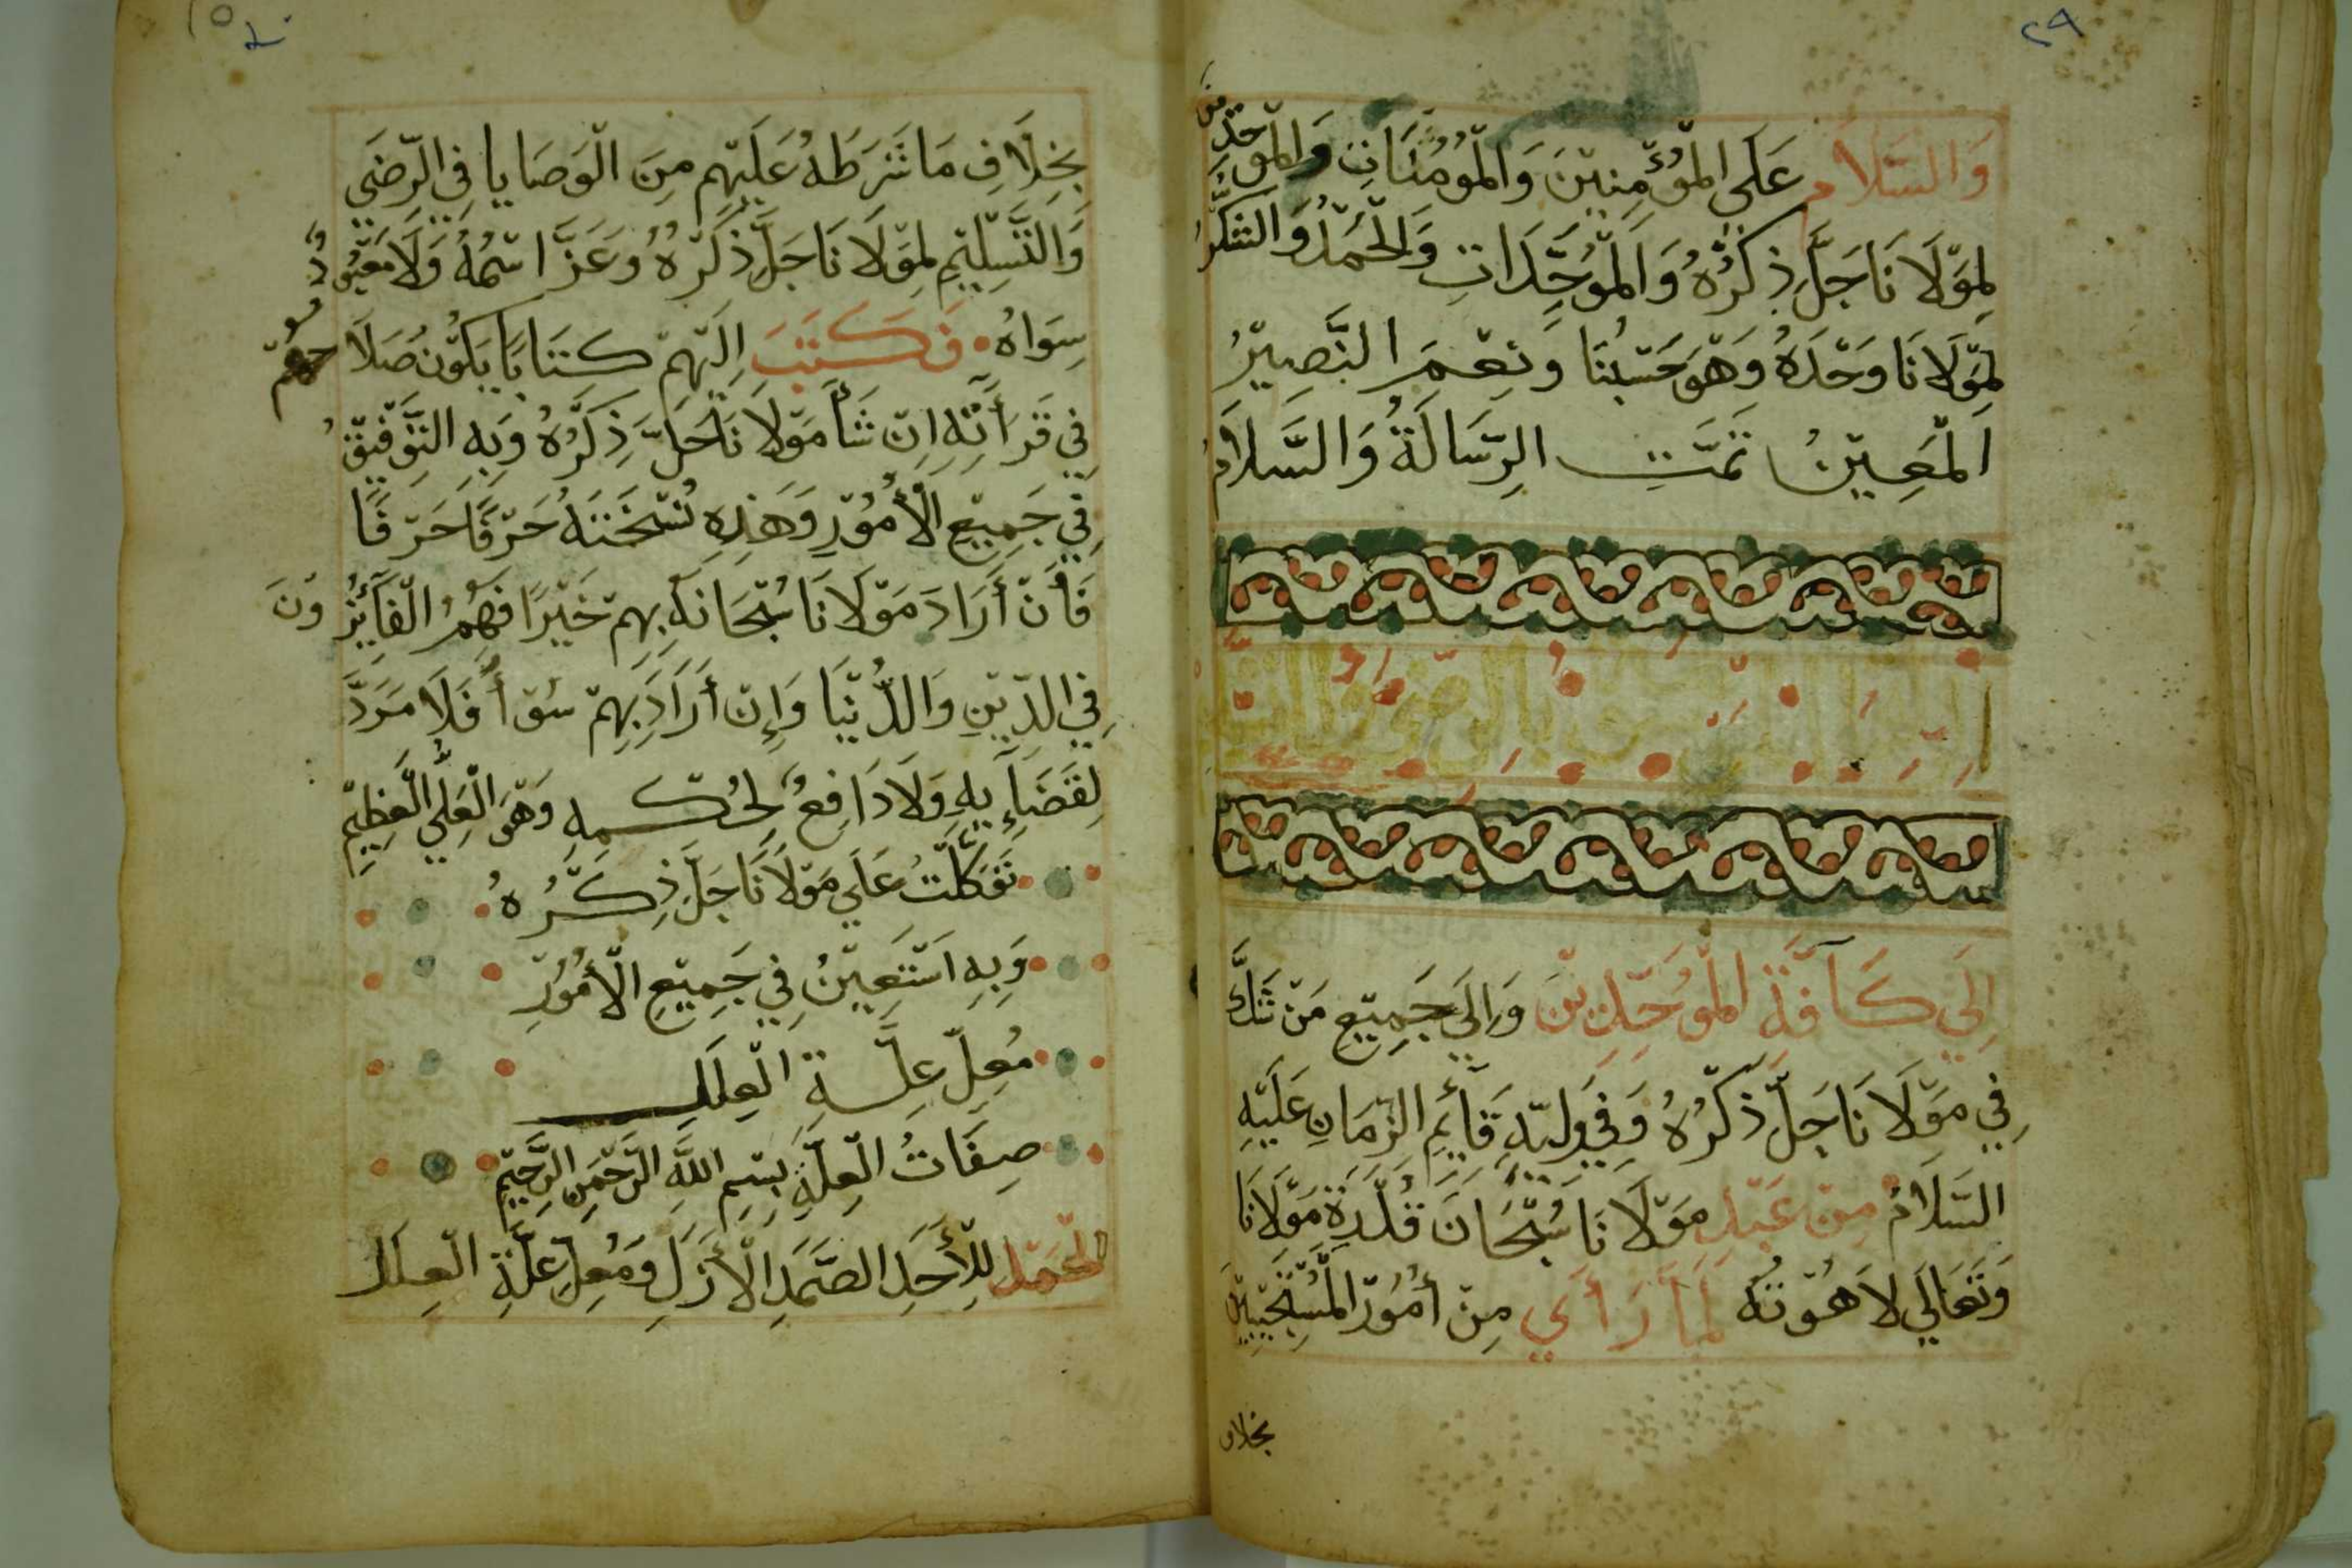 ٢٩
وَالسَّلَام عَلَى الْمُؤْمِنِيْنَ وَالْمُؤْمِنَاتِ وَالْمُوَحِّدِيْنَ
لِمَوْلَانَا جَلَّ ذِكْرُهُ وَالْمُوَحِّدَاتِ وَالْحَمْدُ وَالشُّكْرُ
لِمَوْلَانَا وَحْدَهُ وَهْوَ حَسْبُنَا وَنِعْمَ النَّصِيْرُ
الْمُعِيْنُ تَمَّتِ الرِّسَالَةُ وَالسَّلَامُ
إِلَي كَآفَّةِ الْمُوَحِّدِيْنَ وَإِلَى جَمِيْعِ مَنْ شَكَّ
فِي مَوْلَانَا جَلَّ ذِكْرُهُ وَفِي وَلِيِّهِ قَآئِمِ الزَّمَانِ عَلَيْهِ
السَّلَامُ مِنْ عَبْدِ مَوْلَانَا سُبْحَانَ قُدْرَةِ مَوْلَانَا
وَتَعَالَي لَاهُوْتُهُ لَمَّا رَأَي مِنْ أُمُوْرِ الْمُسْتَجِيْبِيْنَ
بخلاف
بِخِلَافِ مَا شَرَطَهُ عَلَيْهِم مِنَ الْوَصَايَا فِي الرِّضَى
وَالتَّسْلِيْمِ لِمَوْلَانَا جَلَّ ذِكْرُهُ وَعَزَّ اسْمُهُ وَلَا مَعْبُوْدُ
سِوَاهُ فَكَتَبَ إِلَيْهِمْ كِتَابًا يَكُوْنُ صَلَاحُهُمْ
فِي قَرَأَتِهِ إِنْ شَأَ مَوْلَانَا جَلَّ ذِكْرُهُ وَبِهِ التَّوْفِيْقُ
فِي جَمِيْعِ الْأُمُوْرِ وَهَذِهِ نُسْخَتَهُ حَرْفًا حَرْفًا
فَأَنْ أَرَادَ مَوْلَانَا سُبْحَانَهُ بِهِمْ خَيْرًا فَهُمُ الْفَآئِزُوْنَ
فِي الدِّيْنِ وَالدُّنْيَا وَإِنْ أَرَادَ بِهِمْ سُوْأً فَلَا مَرَدَّ
لِقَضَآيِهِ وَلَا دَافِعُ لِحُكْمِهِ وَهْوَ الْعَلِيُّ الْعَظِيْمِ
تَوَكَّلْتُ عَلَي مَوْلَانَا جَلَّ ذِكْرُهُ
وَبِهِ اسْتَعِيْنُ فِي جَمِيْعِ الْأُمُوْرِ
مُعِلّ عِلَّةِ الْعِلَلِ
صِفَاتُ الْعِلَّةِ بِسْمِ اللَّهِ الرَّحْمَنِ الرَّحِيْمِ
الْحَمْدُ لِلْأَحَدِ الصَّمَدِ الْأَزَلِ وَمُعِلِّ عِلَّةِ الْعِلَلِ